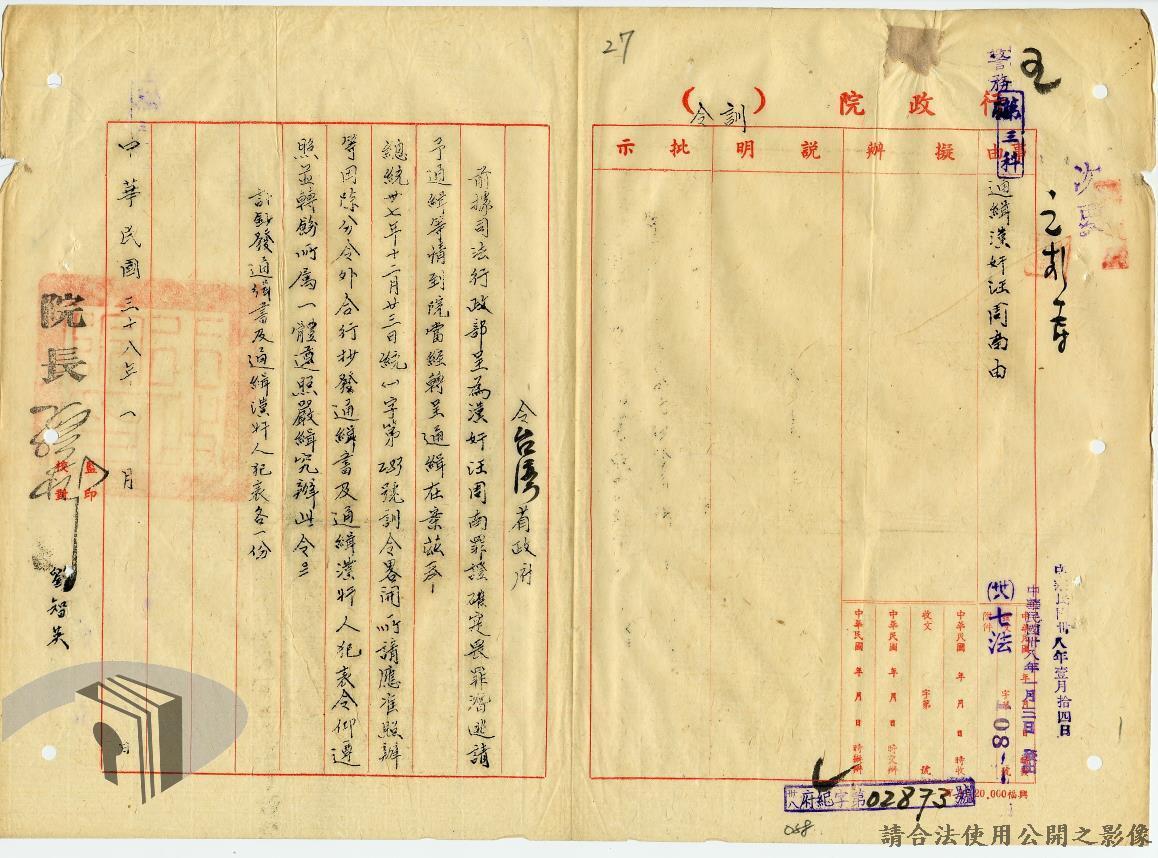 27
行政院(訓令)
事由
擬辦
說明
批示
警務
第三科
通緝漢奸汪周南由
中華民國卅八年壹月拾四日
中華民國卅八年一月
附件
字第
號
(卅)七法
中華民國 年 月 日 時收
收文 字第 號
中華民國 年 月 日 時交辦
中華民國 年 月 日 時擬辦
卅八府紀字第02873號
20,000福興
令台灣省政府
前據司法行政部呈為漢奸汪周南罪證確定畏罪潛逃請
予通緝等情到院當經轉呈通緝在案茲奉
總統卅七年十二月廿三日統(一)字第 號訓令畧開所請應准照辦
等因除分令外合行抄發通緝書及通緝漢奸人犯表令仰遵
照並轉飭所屬一體遵照嚴緝究辦此令
計抄發通緝書及通緝漢奸人犯表各一份
中華民國三十八年一月 日
院長孫科
監印
校對
劉智英
088
請合法使用公開之影像